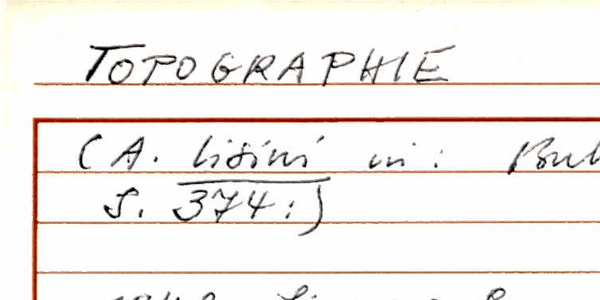 TOPOGRAPHIE
(A. Lisini in: Bul
S. 374:)